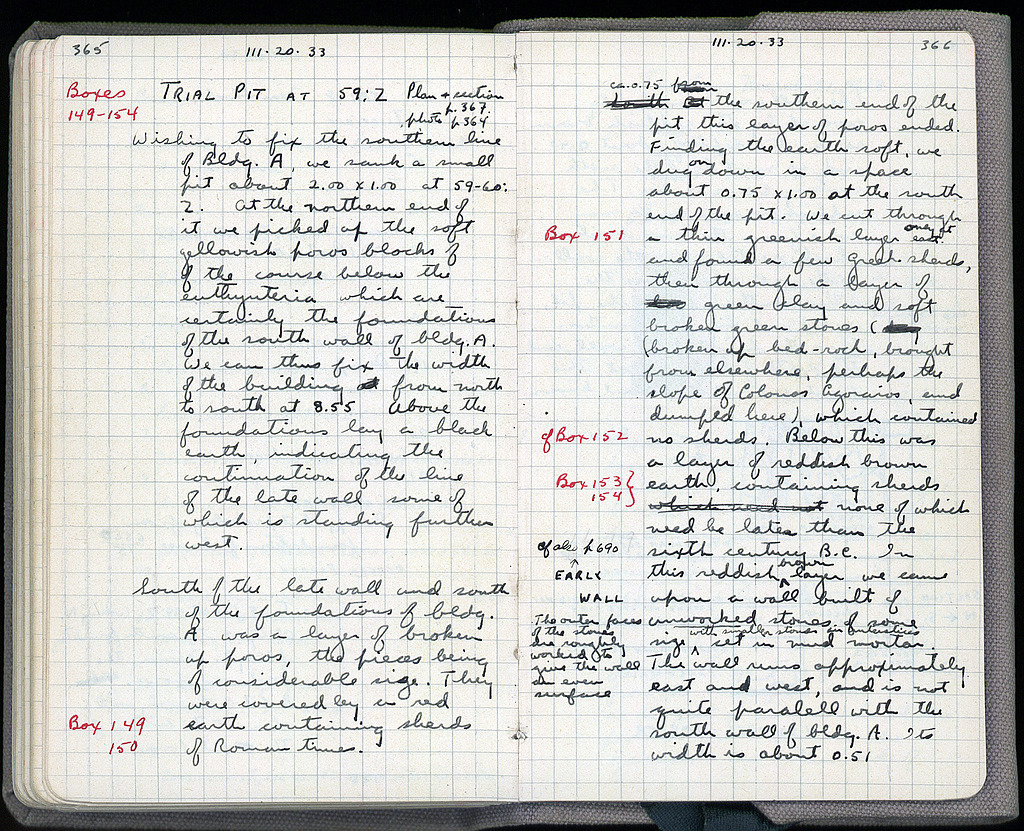 365
111·20·33
Boxes
149-154
TRIAL PIT AT 59:Z Plan & section
p. 367.
photo p 364
Wishing to fix the southern line
of Bldg. A, we sank a small
pit about 2.00 x 1.00 at 59-60:
Z. At the northern end of
it we picked up the soft
yellowish poros blocks of
of the course below the
euthynteria which are
certainly the foundations
of the south wall of bldg. A.
We can thus fix the width
of the building from north
to south at 8.55 Above the
foundations lay a black
earth, indicating the
continuation of the line
of the late wall some of
which is standing further
west.
South of the late wall and south
of the foundations of bldg.
A was a layer of broken
up poros, the pieces being
of considerable size. They
were covered by a red
Box 149
earth containing sherds
150
of Roman times.
111·20·33
366
ca. 0.75 from
south the southern end of the
pit this layer of poros ended.
Finding the earth soft, we
dug on down in a space
about 0.75 x 1.00 at the south
end of the pit. We cut through
Box 151
a thin greenish layer only at east
and found a few Greek sherds,
then through a layer of
green clay and soft
broken green stones (
(broken up bed-rock, brought
from elsewhere, perhaps the
slope of Colonos Agoraios, and
dumped here), which contained
cf Box 152
no sherds. Below this was
a layer of reddish brown
Box 153
154
earth, containing sherds
which need not none of which
need be later than the
cf also p 690
sixth century B.C. In
EARLY
WALL
this reddish brown layer we came
upon a wall built of
The outer faces
of the stones
are roughly
worked to
give the wall
an even
surface
unworked stones of some
size with smaller stones in interstices set in mud mortar.
The wall runs approximately
east and west, and is not
quite paralell with the
south wall of bldg. A. Its
width is about 0.51